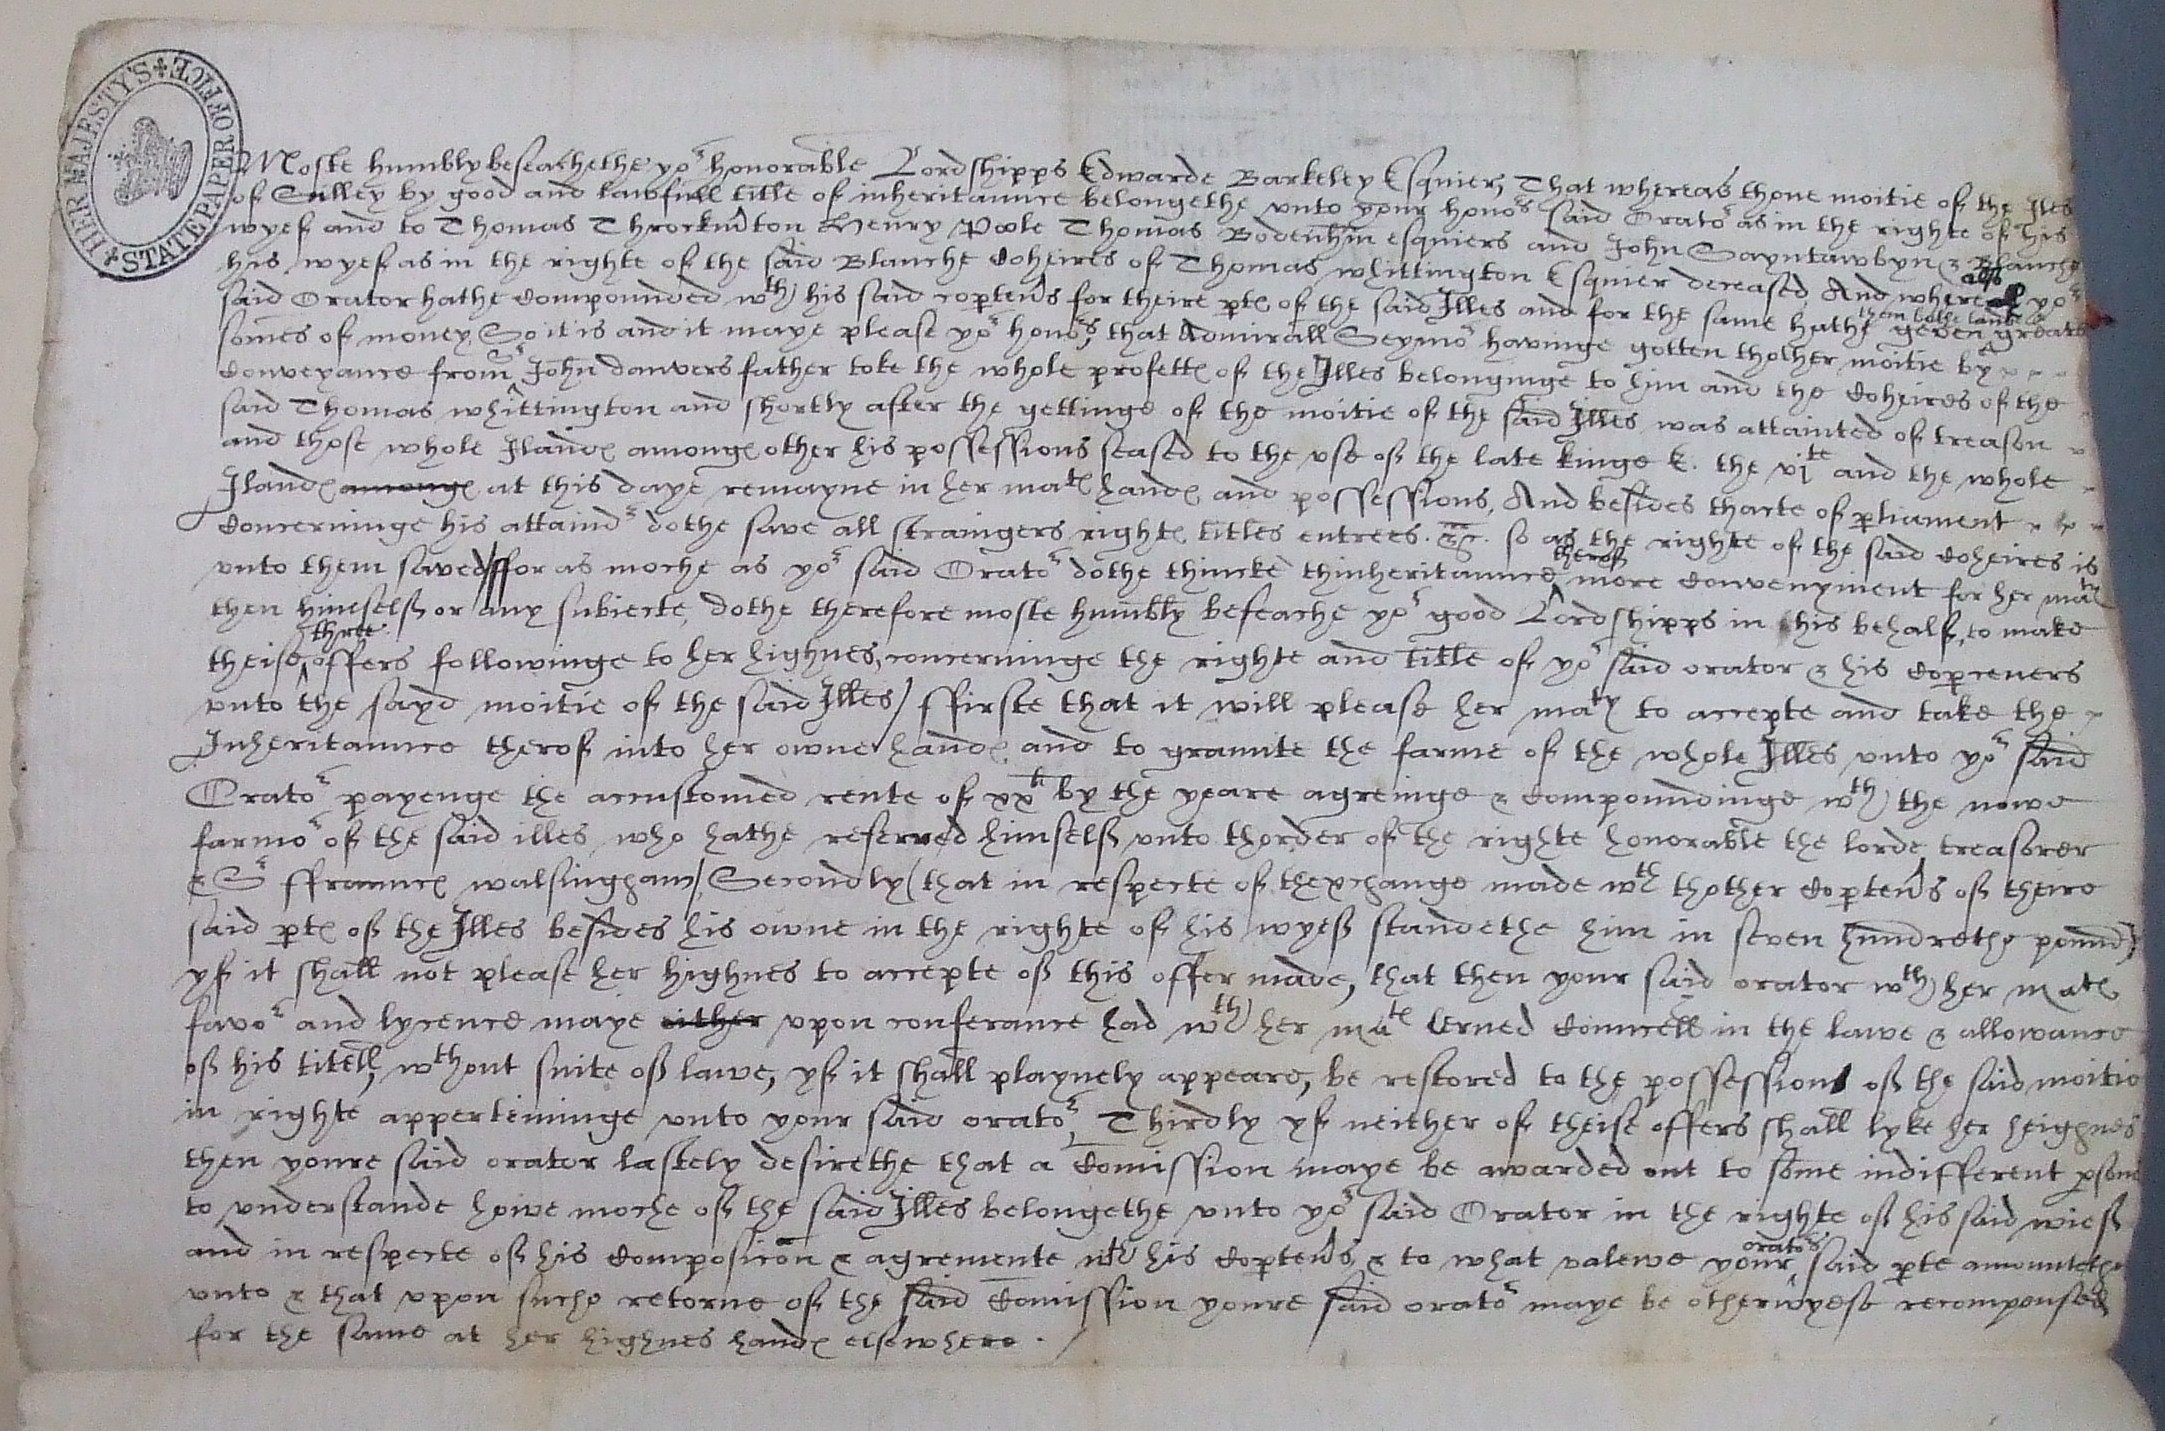 HER MAJESTY'S STATE PAPER OFFICE
Moste humbly beseachethe yor honorable Lordshipps Edwarde Barkeley Esquier, That whereas thone moitie of the Iles
of Sulley by good and lawfull title of inheritaunce belongethe unto your honors said Orator as in the righte of his
wyef and to Thomas Throckmton Henry Poole Thomas Bodenhm esquiers and John Sayntawbyn & Blanche
his wyef as in the righte of the said Blanche Coheires of Thomas Whittington Esquier deceased And where also yor
said Orator hathe Compounded wth his said copteners for theire ptes of the said Illes and for the same hathe geven greate
somes of money So it is and it maye please yor honors, that Admirall Seymor havinge gotten thother moitie by
Conveyance from Sr John Danvers father toke the whole profettes of the Illes belonginge to him and the Coheires of the
said Thomas Whittington and shortly after the gettinge of the moitie of the said Illes was attainted of treason
and those whole Ilandes amonges other his possessions seased to the use of the late kinge E. the vjte and the whole
Ilandes amonges at this daye remayne in her mates handes and possessions, And besides thacte of pliament
Concerninge his attaindr dothe save all straingers rightes titles entrees. &c. so as the righte of the said Coheires is
unto them saved / ffor as moche as yor said Orator dothe thincke thinheritaunce therof more Convenyment for her matie
then himself or any subiecte, dothe therefore moste humbly beseache yor good Lordshipps in this behalf, to make
theise three offers followinge to her highnes, concerninge the righte and title of yor said orator & his Copceners
unto the sayd moitie of the said Illes / ffirste that it will please her maty to accepte and take the
Inheritaunce therof into her owne handes and to graunte the farme of the whole Illes unto yor said
Orator payenge the accustomed rente of xxli by the yeare agreinge & Compoundinge wth the nowe
farmor of the said illes who hathe reserved himself unto thorder of the righte honorable the lorde treasorer
& Sr ffraunces walsingham / Secondly (that in respecte of thexchange made wth thother Copteners of theire
said ptes of the Illes besides his owne in the righte of his wyef standethe him in seven hundrethe pound)
yf it shall not please her highnes to accepte of this offer made, that then your said orator wth her mates
favor and lycence maye either upon conferance had wth her mates lerned Councell in the lawe & allowance
of his titell, wthout suite of lawe, yf it shall playnely appeare, be restored to the possession of the said moitie
in righte apperteininge unto your said orator, Thirdly yf neither of theise offers shall lyke her heighnes
then youre said orator lastely desirethe that a Comission maye be awarded out to some indifferent psons
to understande howe moche of the said Illes belongethe unto yor said Orator in the righte of his said wief
and in respecte of his Composicon & agremente wth his Copteners & to what valewe your orators said pte amountethe
unto & that upon suche retorne of the said Comission youre said orator maye be otherwyese recompensed
for the same at her highnes handes elsewhere .